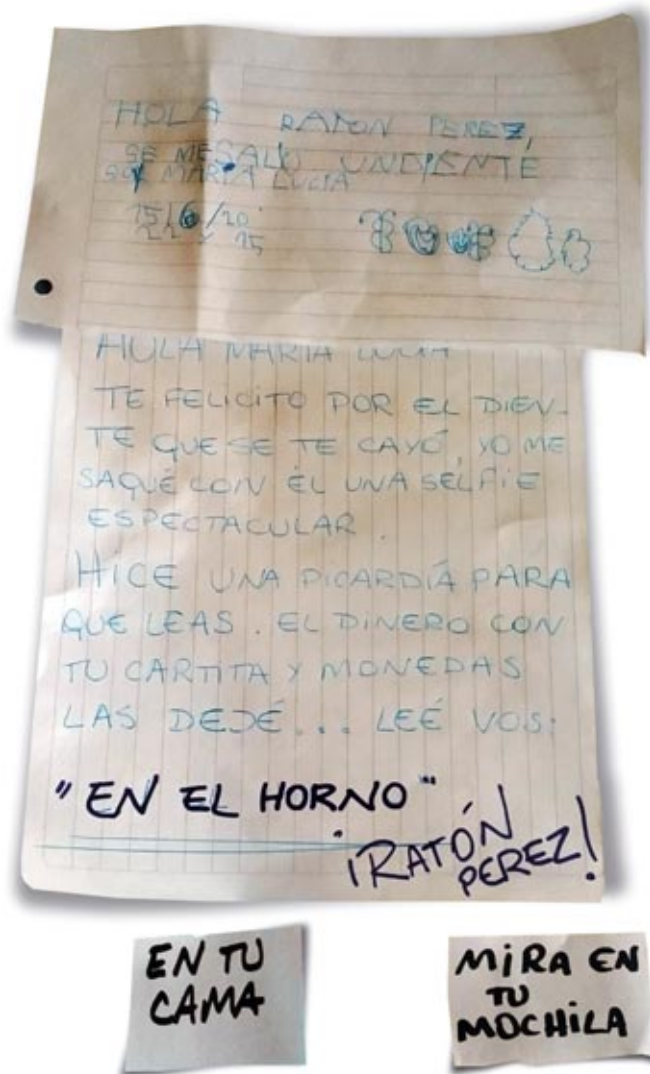 HOLA RATON PEREZ,
SE MESALIO UNDIENTE
SOY MARIA LUCIA
HOLA MARIA LUCIA
TE FELICITO POR EL DIEN-
TE QUE SE TE CAYÓ, YO ME
SAQUÉ CON ÉL UNA SELFIE
ESPECTACULAR.
HICE UNA PICARDIÁ PARA
QUE LEAS. EL DINERO CON
TU CARTITA Y MONEDAS
LAS DEJÉ... LEÉ VOS:
"EN EL HORNO"
¡RATÓN
PEREZ!
EN TU
CAMA
MIRA EN
TU
MOCHILA